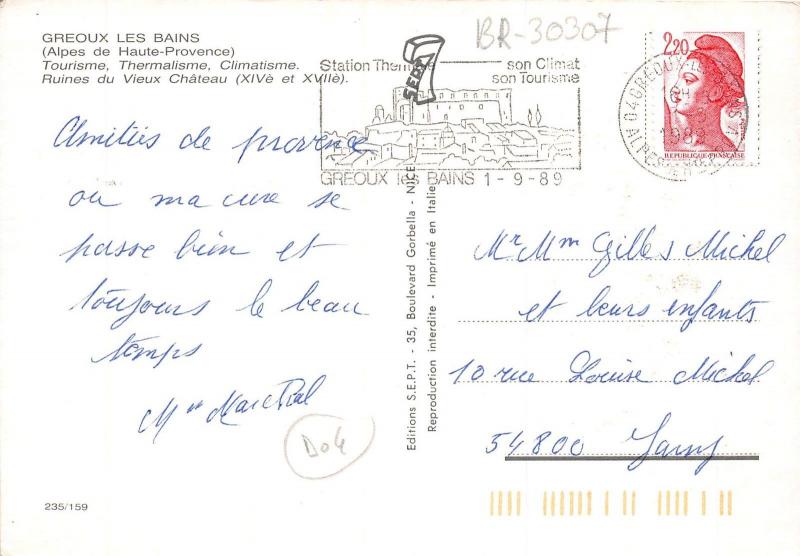 GREOUX LES BAINS
(Alpes de Haute-Provence)
Tourisme, Thermalisme, Climatisme.
Ruines du Vieux Château (XIVè et XVIIè).
BR-30307
Station Therm
son Climat
son Tourisme
SEPT
GREOUX les BAINS 1-9-89
2,20
REPUBLIQUE FRANÇAISE
04 GREOUX-LES
1989
Amitiés de provence
ou ma cure se
passe bien et
toujours le beau
temps
Mme
D04
235/159
Editions S.E.P.T. - 35, Boulevard Gorbella - NICE
Reproduction interdite - Imprimé en Italie
Mr Mm Gilles Michel
et leurs enfants
10 rue Louise Michel
54800 Jarny